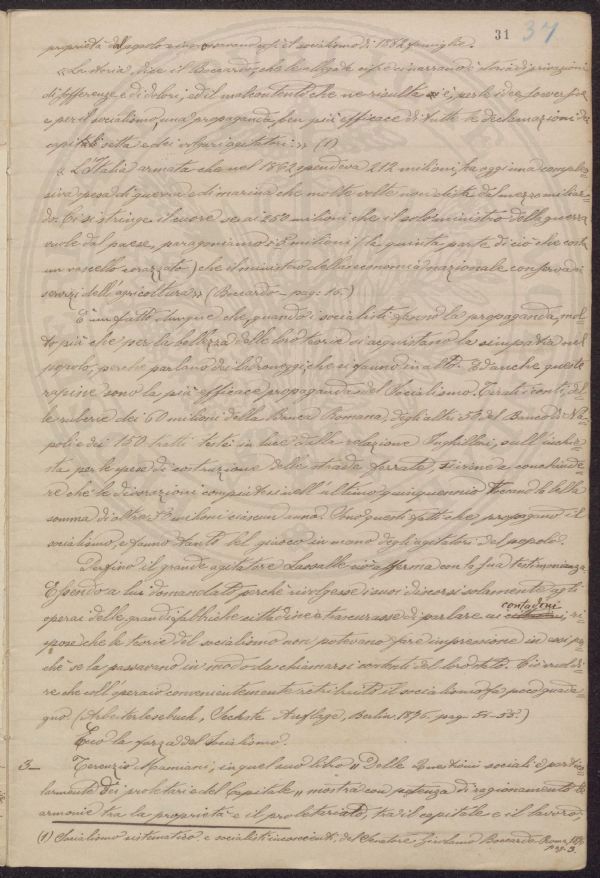 31 37
proprietà del agricola e incoronandosi il socialismo di 1882 famiglie.
« La storia, dice il Boccardo, che le allegate cifre ci narrano, è storia di privazioni,
di sofferenze e di dolori, ed il malcontento che ne risulta è, per le idee sovversive
e per il socialismo, una propaganda, ben più efficace di tutte le declamazioni dei
capi di setta e dei volgari agitatori: » (1)
« L'Italia armata che nel 1862 spendeva 212 milioni, ha oggi una comples
siva spesa di guerra e di marina che molte volte non dista dal mezzo miliar=
do. Ci si stringe il cuore se ai 250 milioni che il solo ministro della guerra
vuole dal paese, paragoniamo i 5 milioni (la quinta parte di ciò che costa
un vascello corazzato) che il ministro della economia nazionale conserva ai
servizi dell'agricoltura » (Boccardo - pag. 16.)
È un fatto dunque che, quando i socialisti fanno la propaganda, mol=
to più che per la bellezza delle loro teorie si acquistano la simpatia nel
popolo, perchè parlano dei ladroneggi che si fanno in alto. Ed anche queste
rapine sono la più efficace propaganda del Socialismo. Tirati i conti, del=
le ruberie dei 60 milioni della Banca Romana, degli altri 50 del Banco di Na=
poli e dei 150 tratti testè in luce dalla relazione, sull'inchie=
sta per le spese di costruzione delle strade ferrate, si viene a conchiude=
re che le divorazioni compiutesi nell'ultimo quinquennio toccano la bella
somma di oltre milioni ciascun anno. Sono questi fatti che propagano il
socialismo, e fanno tanto bel giuoco in mano degli agitatori del popolo.
Perfino il grande agitatore Lassalle ciò afferma con la sua testimonianza.
Essendo a lui domandato perchè rivolgesse i suoi discorsi solamente agli
operai delle grandi fabbriche cittadine e trascurasse di parlare ai contadini, ri=
spose che le teorie del socialismo non potevano fare impressione in essi per=
chè se la passavano in modo da chiamarsi contenti del loro stato. Ciò vuol di=
re che coll'operaio convenientemente retribuito il socialismo fa poco guada=
gno. (Arbeiterlesebuch, Sechste Auflage, Berlin 1896, pag. 52-53.)
Ecco la forza del Socialismo.
3— Terenzio Mamiani, in quel suo libro « Delle Questioni sociali e partico=
larmente dei proletari e del Capitale » mostra con potenza di ragionamento le
armonie tra la proprietà e il proletariato, tra il capitale e il lavoro,
(1) Socialismo sistematico e socialisti incoscienti, del Senatore Girolamo Boccardo Roma,
pag. 3.